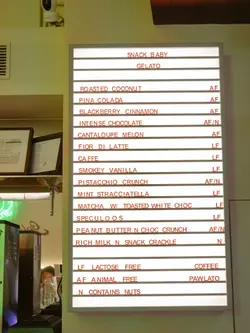 SNACK BABY
GELATO
ROASTED COCONUT AF
PINA COLADA AF
BLACKBERRY CINNAMON AF
INTENSE CHOCOLATE AF/N
CANTALOUPE MELON AF
FIOR DI LATTE LF
CAFFE LF
SMOKEY VANILLA LF
PISTACCHIO CRUNCH AF/N
MINT STRACCIATELLA LF
MATCHA W/ TOASTED WHITE CHOC LF
SPECULOOS LF
PEANUT BUTTER N CHOC CRUNCH AF/N
RICH MILK N SNACK CRACKLE N
LF LACTOSE FREE COFFEE
AF ANIMAL FREE PAWLATO
N CONTAINS NUTS